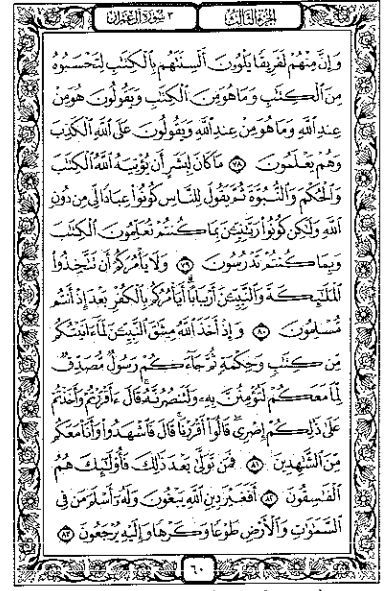 ٣ سورة آل عمران
الجزء الثالث
وَإِنَّ مِنْهُمْ لَفَرِيقًا يَلْوُۥنَ أَلْسِنَتَهُم بِٱلْكِتَٰبِ لِتَحْسَبُوهُ
مِنَ ٱلْكِتَٰبِ وَمَا هُوَ مِنَ ٱلْكِتَٰبِ وَيَقُولُونَ هُوَ مِنْ
عِندِ ٱللَّهِ وَمَا هُوَ مِنْ عِندِ ٱللَّهِ وَيَقُولُونَ عَلَى ٱللَّهِ ٱلْكَذِبَ
وَهُمْ يَعْلَمُونَ ٧٨ مَا كَانَ لِبَشَرٍ أَن يُؤْتِيَهُ ٱللَّهُ ٱلْكِتَٰبَ
وَٱلْحُكْمَ وَٱلنُّبُوَّةَ ثُمَّ يَقُولَ لِلنَّاسِ كُونُوا۟ عِبَادًا لِّى مِن دُونِ
ٱللَّهِ وَلَٰكِن كُونُوا۟ رَبَّٰنِيِّۦنَ بِمَا كُنتُمْ تُعَلِّمُونَ ٱلْكِتَٰبَ
وَبِمَا كُنتُمْ تَدْرُسُونَ ٧٩ وَلَا يَأْمُرَكُمْ أَن تَتَّخِذُوا۟
ٱلْمَلَٰٓئِكَةَ وَٱلنَّبِيِّۦنَ أَرْبَابًا أَيَأْمُرُكُم بِٱلْكُفْرِ بَعْدَ إِذْ أَنتُم
مُّسْلِمُونَ ٨٠ وَإِذْ أَخَذَ ٱللَّهُ مِيثَٰقَ ٱلنَّبِيِّۦنَ لَمَآ ءَاتَيْتُكُم
مِّن كِتَٰبٍ وَحِكْمَةٍ ثُمَّ جَآءَكُمْ رَسُولٌ مُّصَدِّقٌ
لِّمَا مَعَكُمْ لَتُؤْمِنُنَّ بِهِۦ وَلَتَنصُرُنَّهُۥ قَالَ ءَأَقْرَرْتُمْ وَأَخَذْتُمْ
عَلَىٰ ذَٰلِكُمْ إِصْرِى قَالُوٓا۟ أَقْرَرْنَا قَالَ فَٱشْهَدُوا۟ وَأَنَا۠ مَعَكُم
مِّنَ ٱلشَّٰهِدِينَ ٨١ فَمَن تَوَلَّىٰ بَعْدَ ذَٰلِكَ فَأُو۟لَٰٓئِكَ هُمُ
ٱلْفَٰسِقُونَ ٨٢ أَفَغَيْرَ دِينِ ٱللَّهِ يَبْغُونَ وَلَهُۥٓ أَسْلَمَ مَن فِى
ٱلسَّمَٰوَٰتِ وَٱلْأَرْضِ طَوْعًا وَكَرْهًا وَإِلَيْهِ يُرْجَعُونَ ٨٣
٦٠